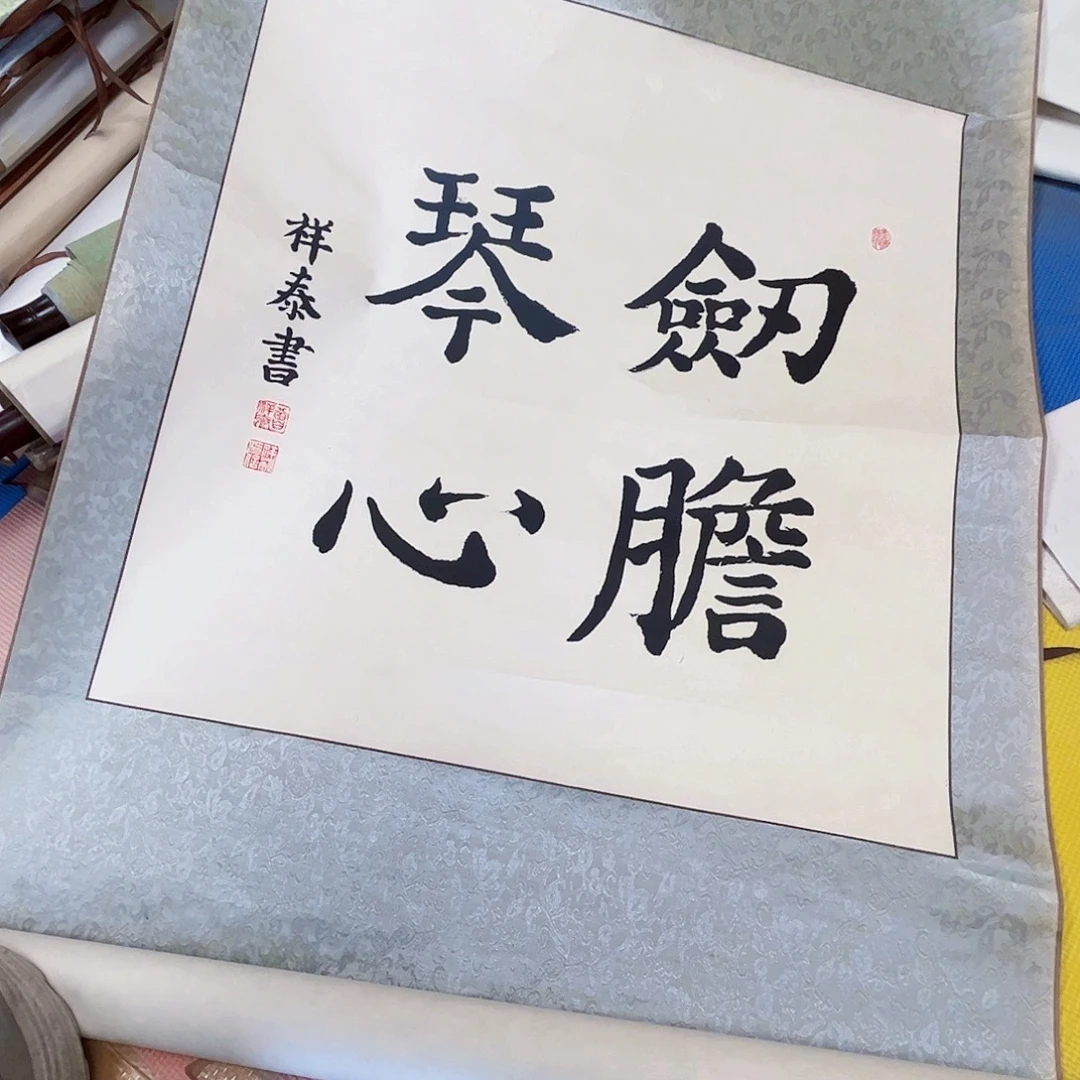 劒膽
琴心
祥泰書